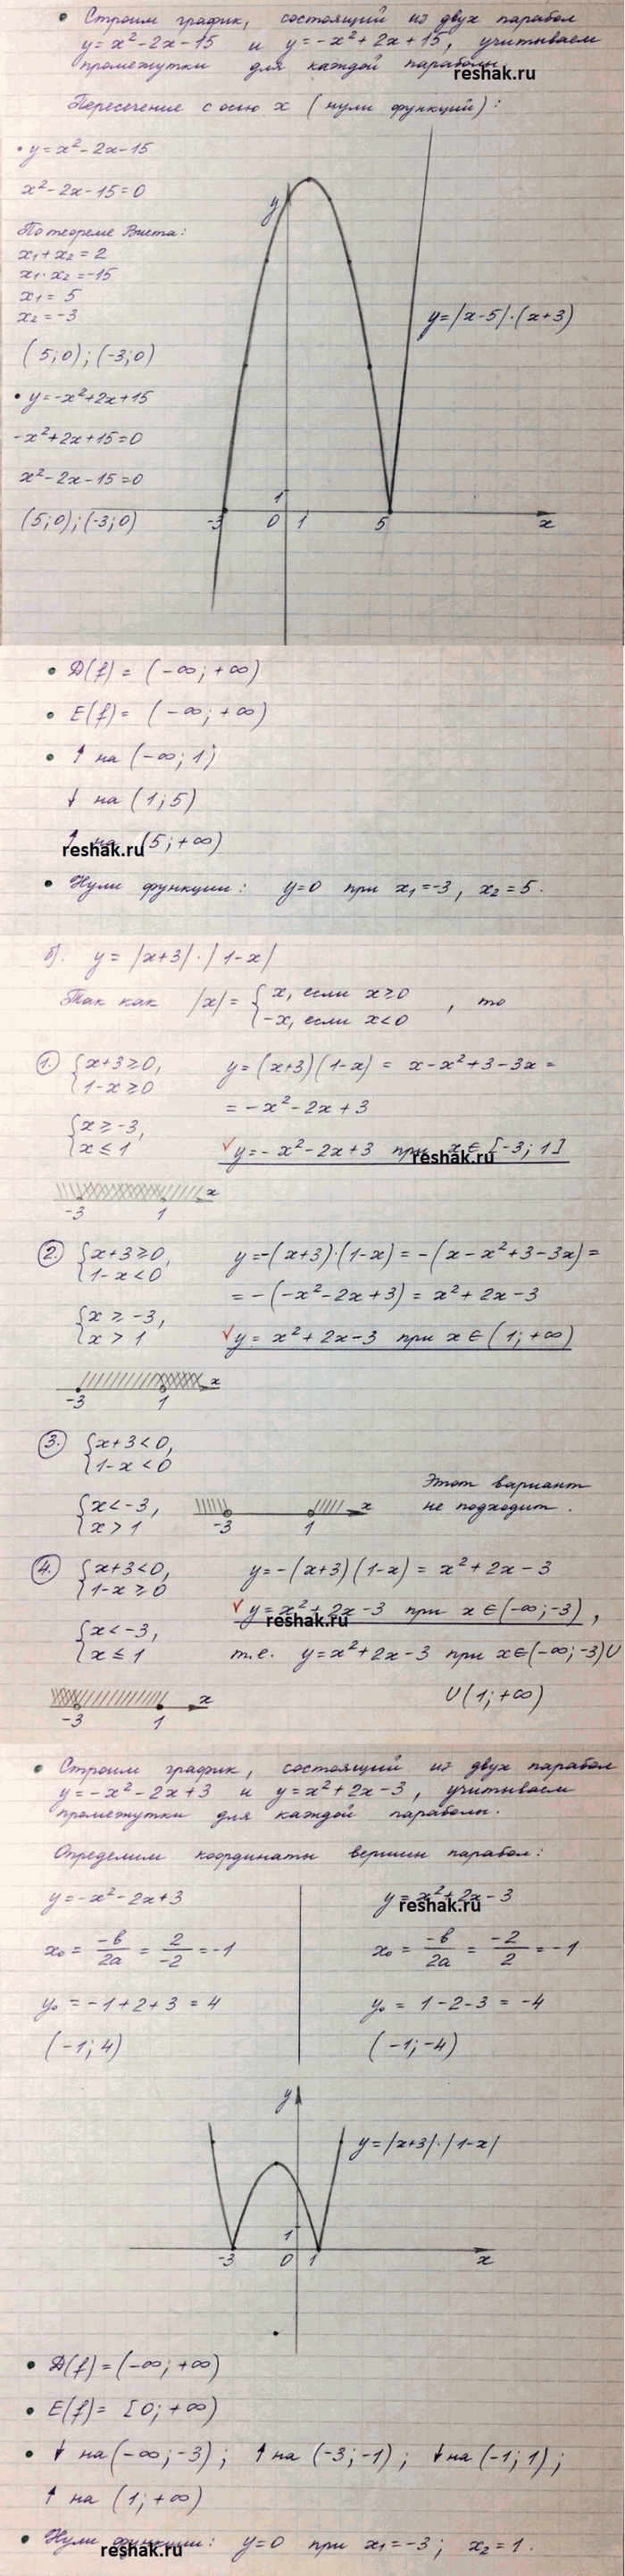 • Строим график, состоящий из двух парабол
y = x² - 2x - 15 и y = -x² + 2x + 15, учитываем
промежутки для каждой параболы.
reshak.ru
Пересечение с осью x (нули функций):
• y = x² - 2x - 15
x² - 2x - 15 = 0
По теореме Виета:
x₁ + x₂ = 2
x₁ · x₂ = -15
x₁ = 5
x₂ = -3
(5; 0); (-3; 0)
• y = -x² + 2x + 15
-x² + 2x + 15 = 0
x² - 2x - 15 = 0
(5; 0); (-3; 0)
y
y = |x-5|·(x+3)
1
-3 0 1 5 x
• D(f) = (-∞; +∞)
• E(f) = (-∞; +∞)
• ↑ на (-∞; 1)
↓ на (1; 5)
↑ на (5; +∞)
reshak.ru
• Нули функции: y=0 при x₁ = -3, x₂ = 5.
б). y = |x+3|·|1-x|
Так как |x| = { x, если x ≥ 0 , то
{ -x, если x < 0
1. { x+3 ≥ 0, y = (x+3)(1-x) = x - x² + 3 - 3x =
{ 1-x ≥ 0
= -x² - 2x + 3
{ x ≥ -3,
{ x ≤ 1
✓ y = -x² - 2x + 3 при x ∈ [-3; 1]
reshak.ru
-3 1 x
2. { x+3 ≥ 0, y = -(x+3)·(1-x) = -(x - x² + 3 - 3x) =
{ 1-x < 0
= -(-x² - 2x + 3) = x² + 2x - 3
{ x ≥ -3,
{ x > 1
✓ y = x² + 2x - 3 при x ∈ (1; +∞)
-3 1 x
3. { x+3 < 0,
{ 1-x < 0
{ x < -3,
{ x > 1
-3 1 x
Этот вариант
не подходит.
4. { x+3 < 0, y = -(x+3)(1-x) = x² + 2x - 3
{ 1-x ≥ 0
✓ y = x² + 2x - 3 при x ∈ (-∞; -3),
reshak.ru
{ x < -3,
{ x ≤ 1
т.е. y = x² + 2x - 3 при x ∈ (-∞; -3) U
U (1; +∞)
-3 1 x
• Строим график, состоящий из двух парабол
y = -x² - 2x + 3 и y = x² + 2x - 3, учитываем
промежутки для каждой параболы.
Определим координаты вершин парабол:
y = -x² - 2x + 3
x₀ = -b/2a = 2/-2 = -1
y₀ = -1 + 2 + 3 = 4
(-1; 4)
y = x² + 2x - 3
reshak.ru
x₀ = -b/2a = -2/2 = -1
y₀ = 1 - 2 - 3 = -4
(-1; -4)
y
y = |x+3|·|1-x|
1
-3 0 1 x
• D(f) = (-∞; +∞)
• E(f) = [0; +∞)
• ↓ на (-∞; -3); ↑ на (-3; -1); ↓ на (-1; 1);
↑ на (1; +∞)
• Нули функции: y=0 при x₁ = -3; x₂ = 1.
reshak.ru